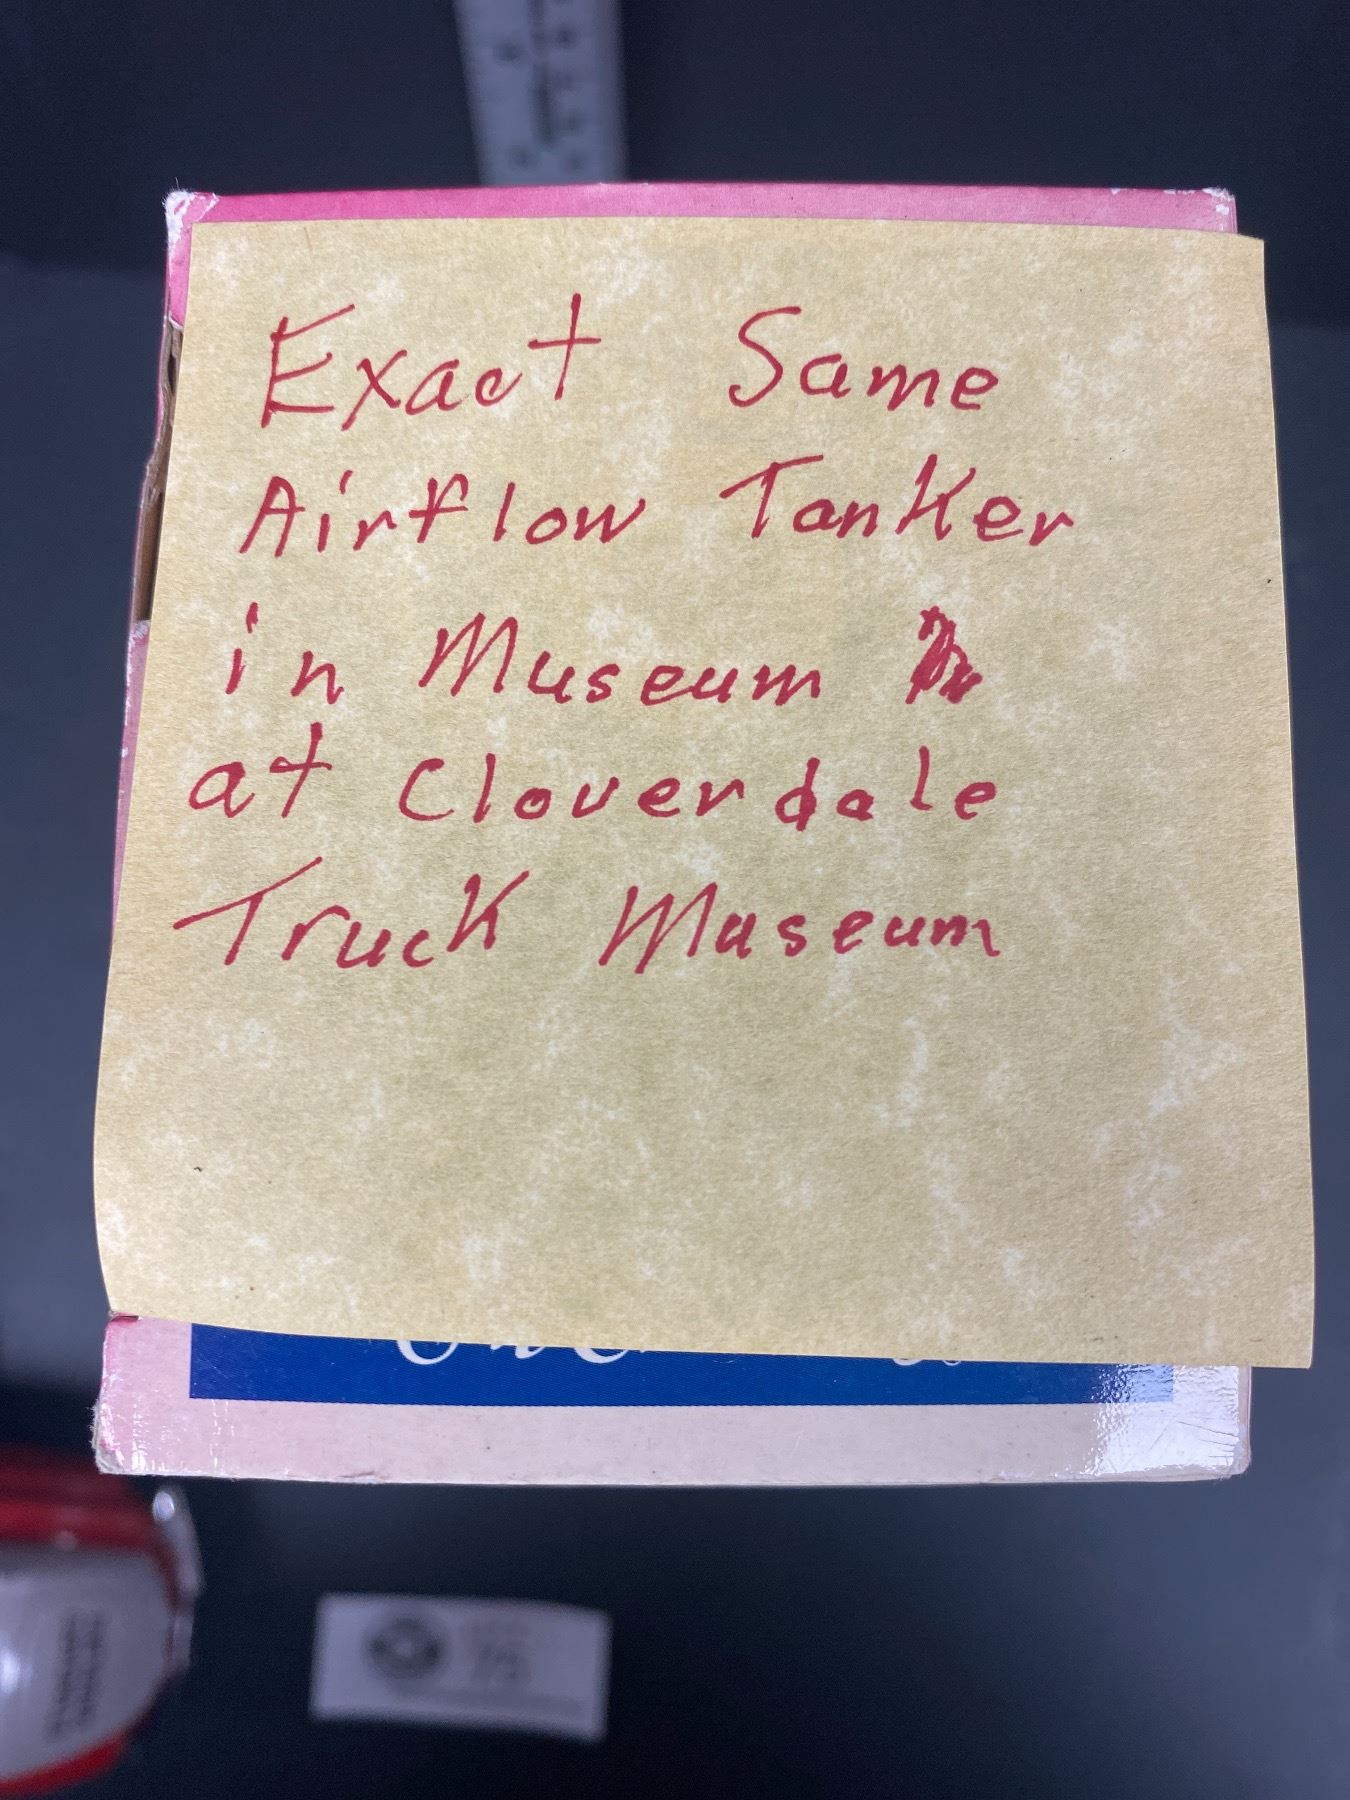 Exact Same
Airflow Tanker
in Museum
at Cloverdale
Truck Museum
75